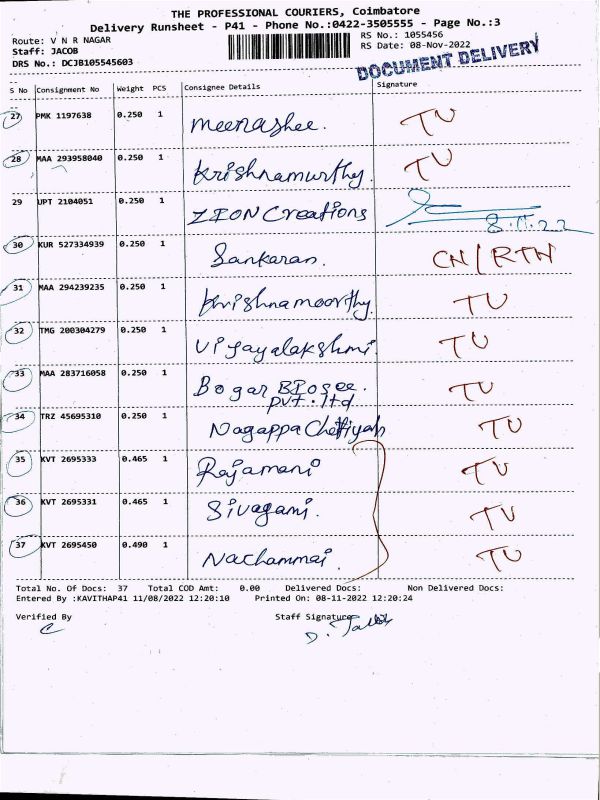 THE PROFESSIONAL COURIERS, Coimbatore
Delivery Runsheet - P41 - Phone No.:0422-3505555 - Page No.:3
Route: V N R NAGAR
RS No.: 1055456
Staff: JACOB
RS Date: 08-Nov-2022
DRS No.: DCJB105545603
DOCUMENT DELIVERY
S No Consignment No Weight PCS Consignee Details Signature
27 PMK 1197638 0.250 1 Meenashee. TU
28 MAA 293958040 0.250 1 Krishnamurthy. TU
29 UPT 2104051 0.250 1 ZION Creations 8.11.22
30 KUR 527334939 0.250 1 Sankaran. CN/RTN
31 MAA 294239235 0.250 1 Krishnamoorthy. TU
32 TMG 200304279 0.250 1 Vijayalakshmi TU
33 MAA 283716058 0.250 1 Bogar BIosee. TU
pvt.ltd
34 TRZ 45695310 0.250 1 Nagappa Chettiyah TU
35 KVT 2695333 0.465 1 Rajamani TU
36 KVT 2695331 0.465 1 Sivagami. TU
37 KVT 2695450 0.490 1 Nachammai. TU
Total No. Of Docs: 37 Total COD Amt: 0.00 Delivered Docs: Non Delivered Docs:
Entered By :KAVITHAP41 11/08/2022 12:20:10 Printed On: 08-11-2022 12:20:24
Verified By Staff Signature
D. Jacob